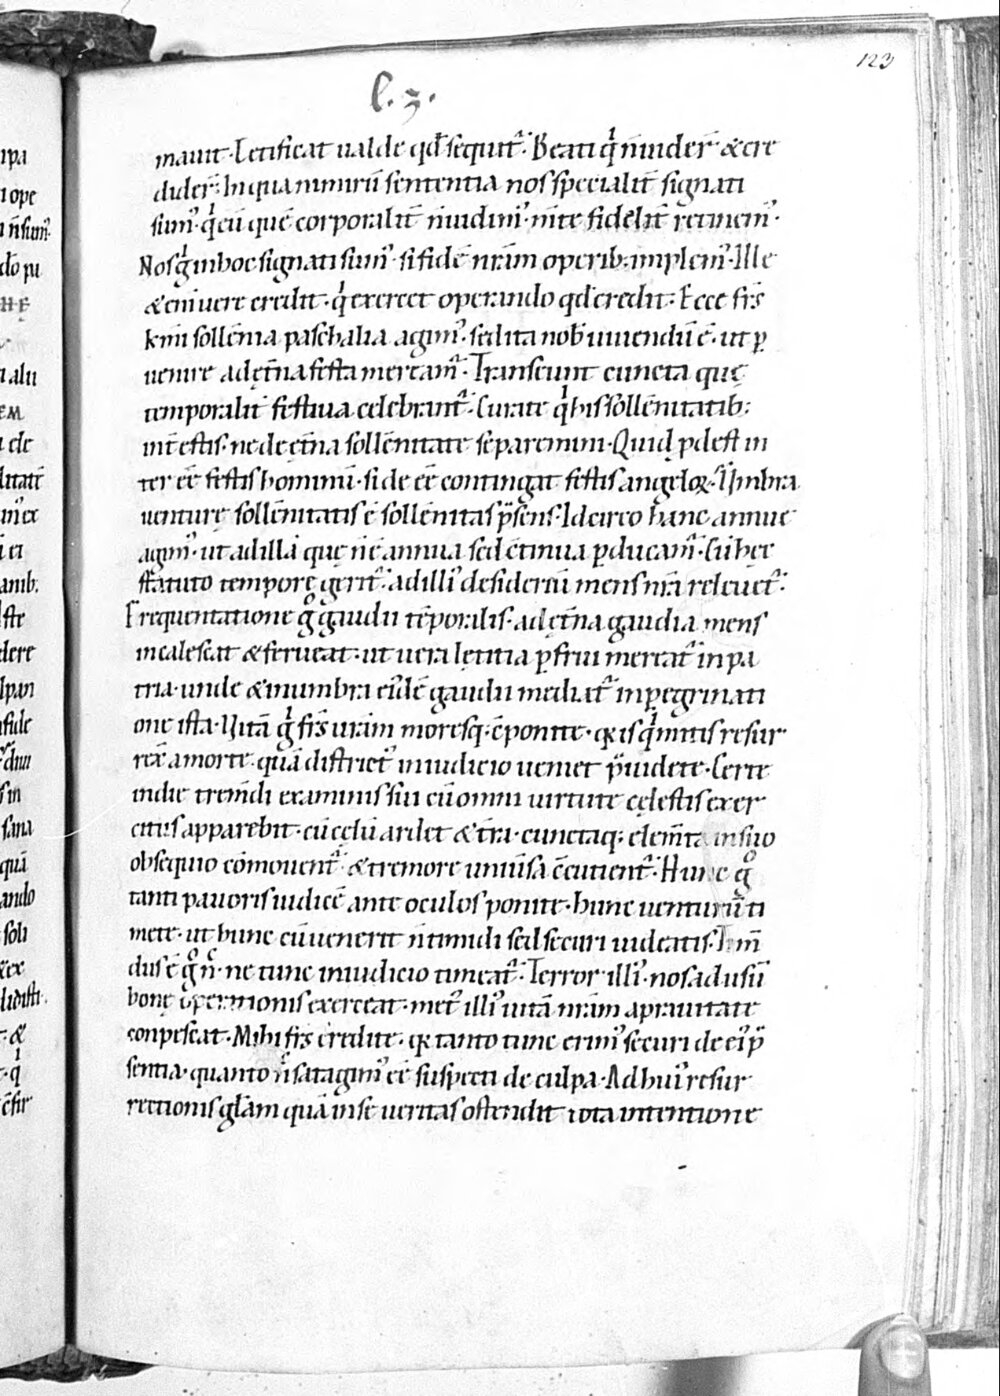 123
l. z.
mauit. Letificat ualde qđ sequit᷑. Beati qͥ n̄ uideȓ & cre
dideȓ. In qua nimirū sententia nos specialit̄ signati
sum᷒. qͥ eū quē corporalit̄ n̄ uidim᷒ m̄te fidelit̄ retinem᷒.
Nos gͥ in hoc signati sum᷒. si fidē nr̄am operib; implem᷒. Ille
&eni uere credit. qͥ exercet operando qđ credit. Ecce fr̄s
km̄i sollēnia paschalia agim᷒. sed ita nob̄ uiuendū ē. ut ꝑ
uenire ad ęt̄na festa meream᷑. Transeunt cuncta quę
temporalit̄ festiua celebrant᷑. Curate qͥ his sollēnitatib;
int̄estis. ne de ęt̄na sollēnitate separemini. Quid ꝓdest in
ter eē festis hominū. si de eē contingat festis angeloꝝ. Vmbra
venturę sollēnitatis ē sollēnitas p̄sens. Idcirco hanc annue
agim᷒. ut ad illā quę n̄ ē annua sed ētinua ꝑducam᷑. Cū hęc
statuto tempore gerit᷑. ad illi᷒ desideriū mens nr̄a releuet᷑.
Frequentatione gͦ gaudii tēporalis. ad ęt̄na gaudia mens
incalescat & ferueat. ut uera lętitia ꝑfrui mereat᷑ in pa
tria. unde & in umbra eiđē gaudii mediat᷑ in ꝑegrinati
one ista. Vitā gͥ fr̄s ur̄am moresq; ēponite. qꝛ is qͥ mitis resur
rex̄ a morte. quā district᷒ in iudicio ueniet p̄uidete. Certe
in die trem̄di examinis sui cū omni uirtute cęlestis exer
citus apparebit. cū cęlū ardet & t̄ra. cunctaq; elem̄ta in suo
obsequio cōmouent᷑. & tremore uniūsa ēcutient᷑. Hunc gͦ
tanti pauoris iudicē ante oculos ponite. hunc uenturū ti
mete. ut hunc cū uenerit n̄ timidi sed securi uideatis. Tim̄
dus ē gͦ nc̄. ne tunc in iudicio timeat᷑. Terror illi᷒ nos ad usū
bonę operationis exerceat. met᷒ illi᷒ uitā nr̄am a prauitate
conpescat. Mihi fr̄s credite. qꝛ tanto tunc erim᷒ securi de ei᷒ p̄
sentia. quanto nc̄ satagim᷒ eē suspecti de culpa. Ad hui᷒ resur
rectionis gl̄am quā in se ueritas ostendit tota intentione